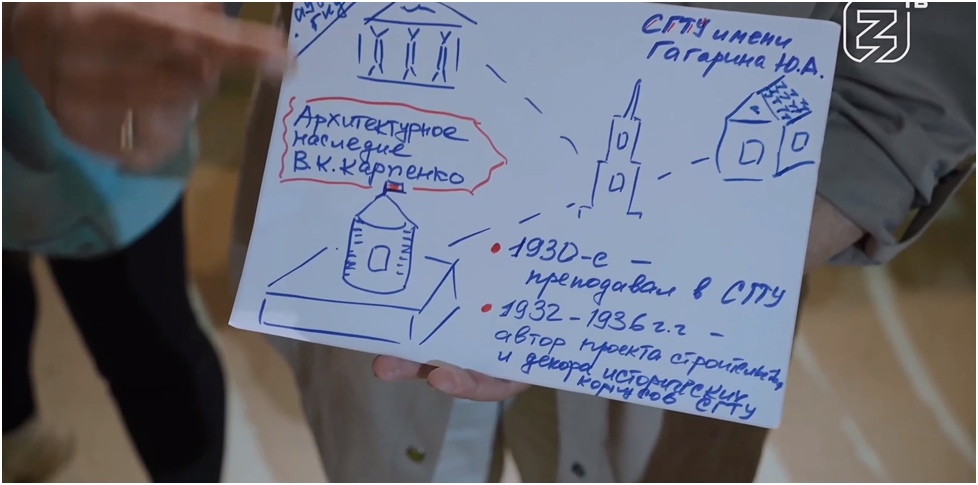 СГТУ имени
Гагарина Ю.А.
Архитектурное
наследие
В.К.Карпенко
• 1930-е –
преподавал в СГТУ
• 1932-1936 г.г –
автор проекта
и декора исторических
корпусов СГТУ
ТВ